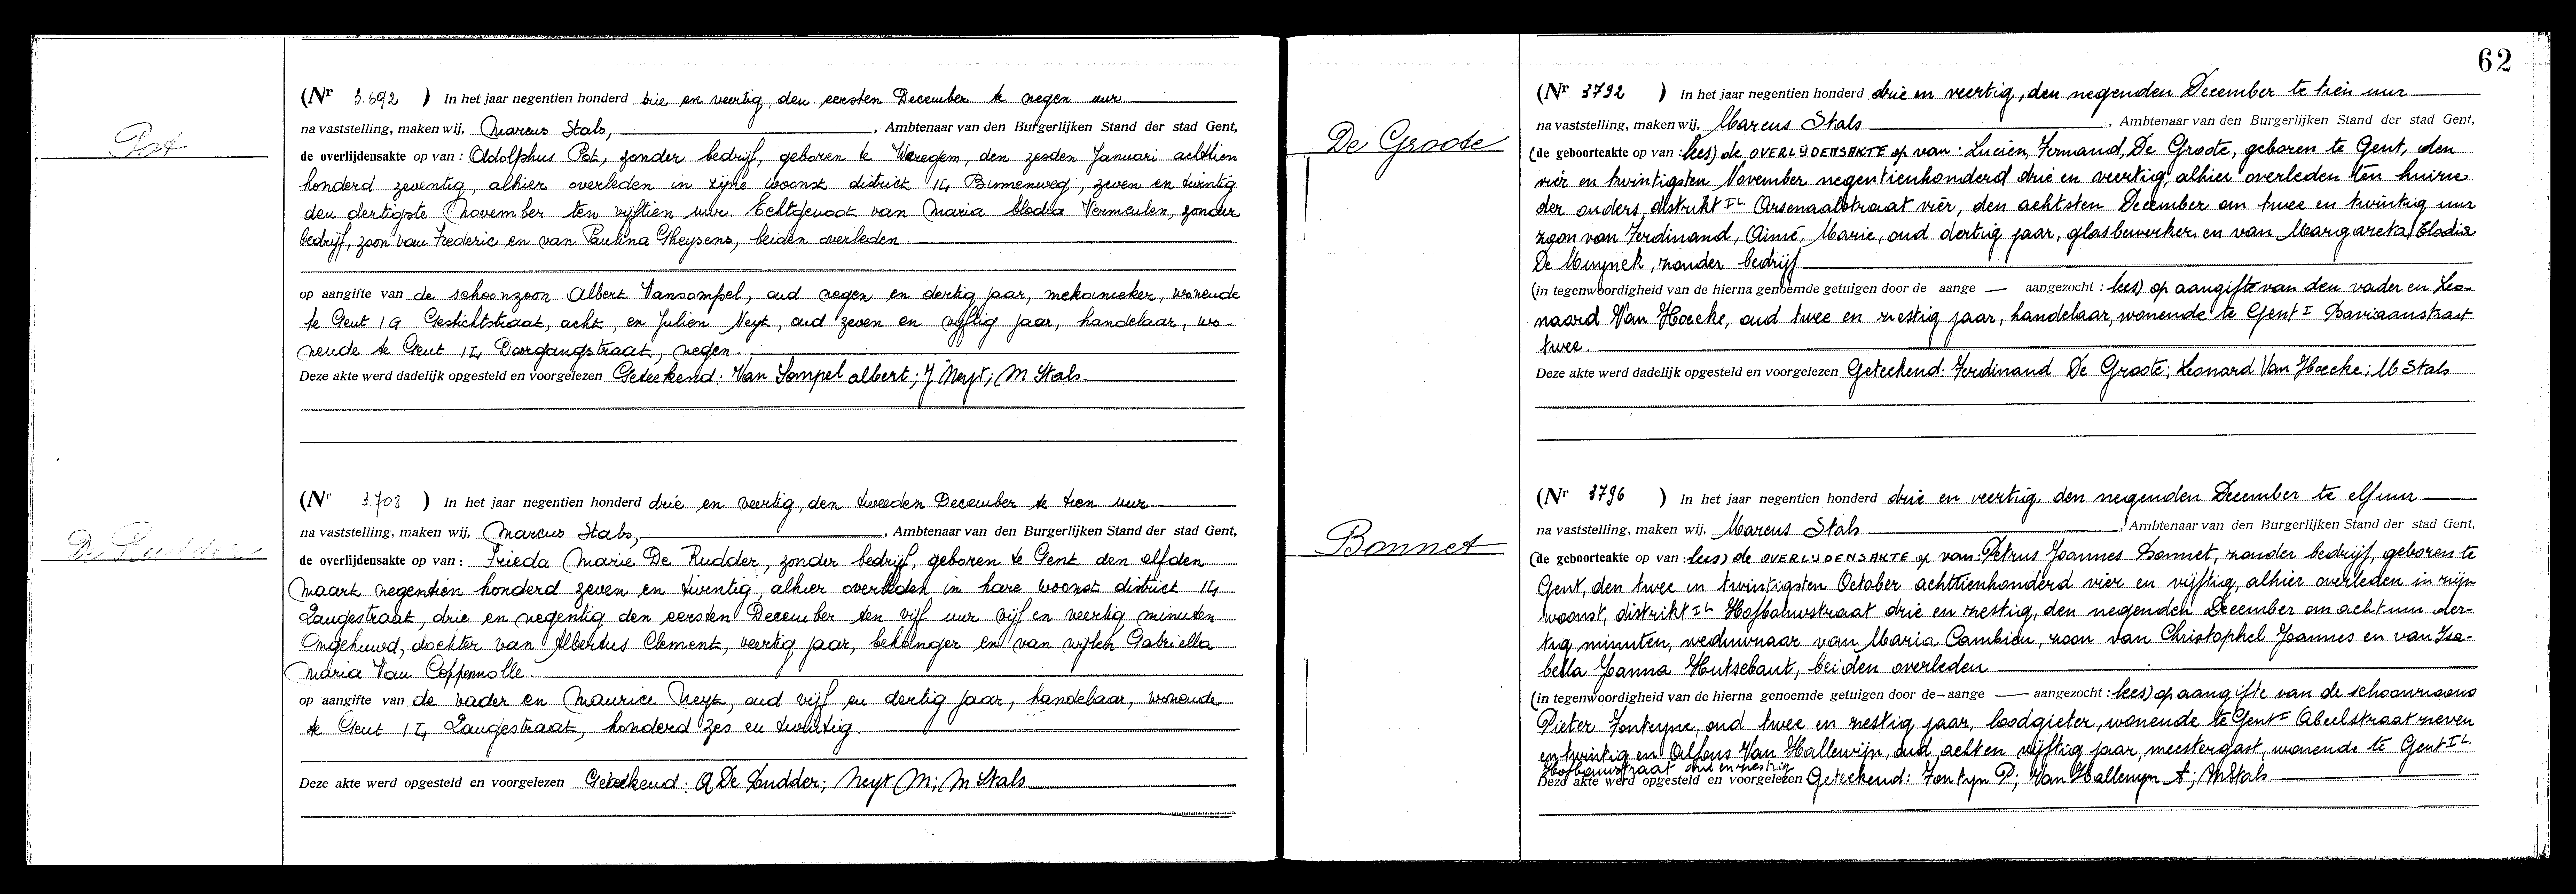 Pot
(Nr 3.692 ) In het jaar negentien honderd drie en veertig, den eersten December te negen uur.
na vaststelling, maken wij, Marcus Stals, , Ambtenaar van den Burgerlijken Stand der stad Gent,
de overlijdensakte op van : Adolphus Pot, zonder bedrijf, geboren te Waregem, den zesden Januari achttien
honderd zeventig, alhier overleden in zijne woonst district IL Binnenweg, zeven en twintig
den dertigste November ten vijftien uur. Echtgenoot van Maria Elodia Vermeulen, zonder
bedrijf, zoon van Frederic en van Paulina Gheysens, beiden overleden.
op aangifte van de schoonzoon Albert Vansompel, oud negen en dertig jaar, mekanieker, wonende
te Gent IG Gestichtstraat, acht, en Julien Neyt, oud zeven en vijftig jaar, handelaar, wo-
nende te Gent IL Doorgangstraat, negen.
Deze akte werd dadelijk opgesteld en voorgelezen Geteekend: Van Sompel albert; J Neyt; M Stals
De Rudder
(Nr 3.708 ) In het jaar negentien honderd drie en veertig, den tweeden December te tien uur.
na vaststelling, maken wij, Marcus Stals, , Ambtenaar van den Burgerlijken Stand der stad Gent,
de overlijdensakte op van : Frieda Marie De Rudder, zonder bedrijf, geboren te Gent den elfden
Maart negentien honderd zeven en twintig, alhier overleden in hare woonst district IL
Langestraat, drie en negentig den eersten December ten vijf uur vijf en veertig minuten
Ongehuwd, dochter van Albertus Clement, veertig jaar, behanger en van wijlen Gabriella
Maria Van Coppenolle.
op aangifte van de vader en Maurice Neyt, oud vijf en dertig jaar, handelaar, wonende
te Gent IL Langestraat, honderd zes en twintig.
Deze akte werd opgesteld en voorgelezen Geteekend: A De Rudder; Neyt M; M Stals
62
De Groote
(Nr 3792 ) In het jaar negentien honderd drie en veertig, den negenden December te tien uur
na vaststelling, maken wij, Marcus Stals , Ambtenaar van den Burgerlijken Stand der stad Gent,
(de geboorteakte op van : lees) de OVERLIJDENSAKTE op van : Lucien, Fernand, De Groote, geboren te Gent, den
vier en twintigsten November negentienhonderd drie en veertig, alhier overleden ten huize
der ouders, distrikt IL Arsenaalstraat vier, den achtsten December om twee en twintig uur
zoon van Ferdinand, Aimé, Marie, oud dertig jaar, glasbewerker, en van Margareta, Elodia
De Muynck, zonder bedrijf
(in tegenwoordigheid van de hierna genoemde getuigen door de aange — aangezocht : lees) op aangifte van den vader en Leo-
naard Van Hoecke, oud twee en zestig jaar, handelaar, wonende te Gent I Baviaanstraat
twee.
Deze akte werd dadelijk opgesteld en voorgelezen Geteekend: Ferdinand De Groote; Leonard Van Hoecke; M Stals
Bonnet
(Nr 3796 ) In het jaar negentien honderd drie en veertig den negenden December te elf uur
na vaststelling, maken wij, Marcus Stals , Ambtenaar van den Burgerlijken Stand der stad Gent,
(de geboorteakte op van : lees) de OVERLIJDENSAKTE op van: Petrus Joannes Bonnet, zonder bedrijf, geboren te
Gent, den twee en twintigsten October achttienhonderd vier en vijftig, alhier overleden in zijn
woonst, distrikt IL Hofbouwstraat drie en zestig, den negenden December om acht uur der-
tig minuten, weduwnaar van Maria Cambien, zoon van Christophel Joannes en van Isa-
bella Joanna Hutsebaut, beiden overleden
(in tegenwoordigheid van de hierna genoemde getuigen door de aange — aangezocht : lees) op aangifte van de schoonzoons
Pieter Fonteyne, oud twee en zestig jaar, loodgieter, wonende te Gent I Abeelstraat zeven
en twintig en Alfons Van Hallewijn, oud acht en vijftig jaar, meestergast, wonende te Gent IL
Hofbouwstraat drie en zestig
Deze akte werd opgesteld en voorgelezen Geteekend: Fonteyn P; Van Hallewyn A; M Stals